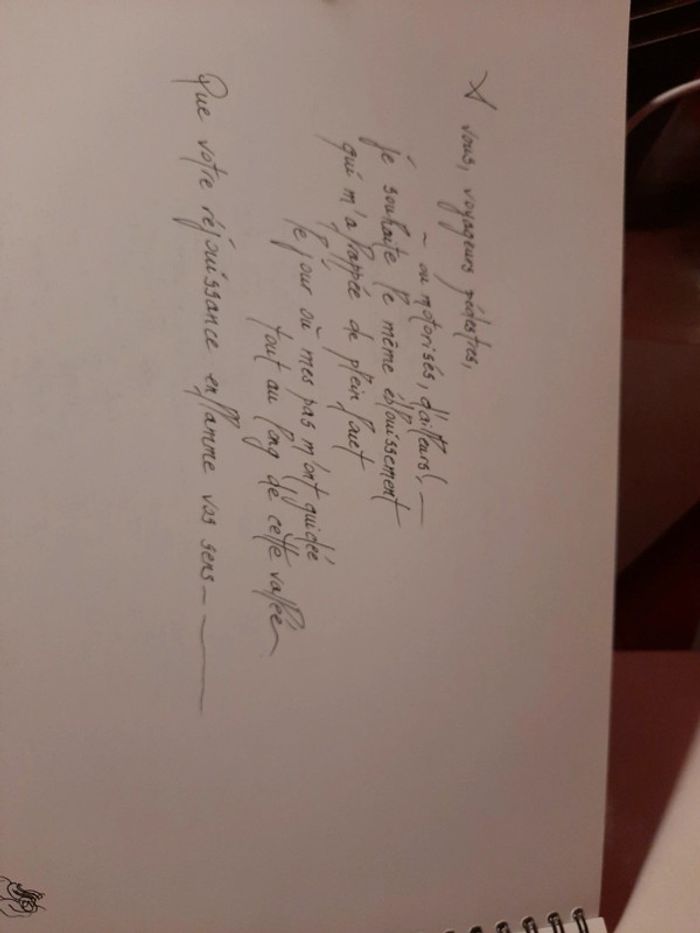 A vous, voyageurs pédestres,
– ou motorisés, d'ailleurs! –
je souhaite le même éblouissement
qui m'a frappée de plein fouet
le jour où mes pas m'ont guidée
tout au long de cette vallée
Que votre réjouissance enflamme vos sens –